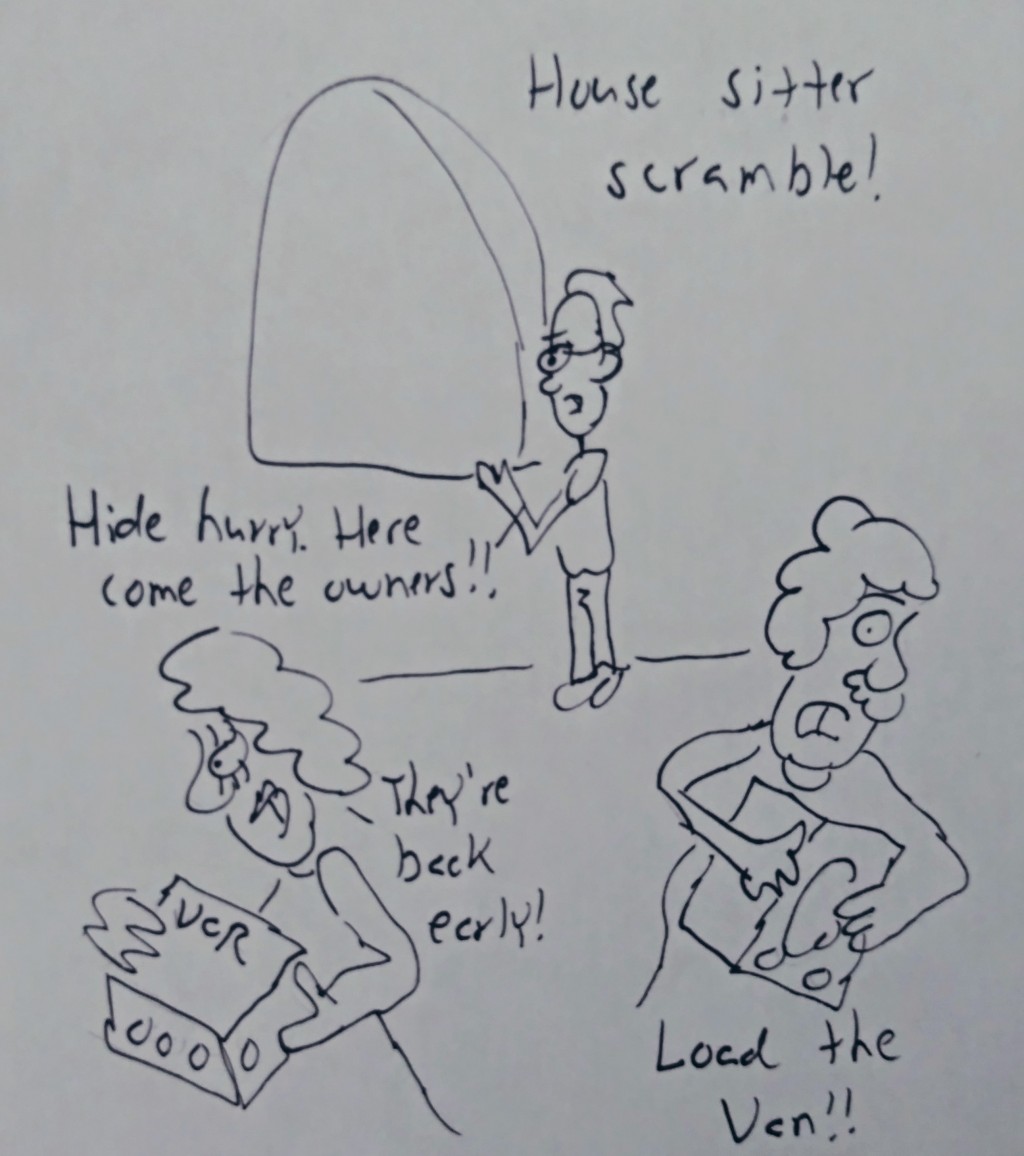 House sitter
scramble!
Hide hurry. Here
come the owners!!
They're
back
early!
VCR
Load the
Van!!